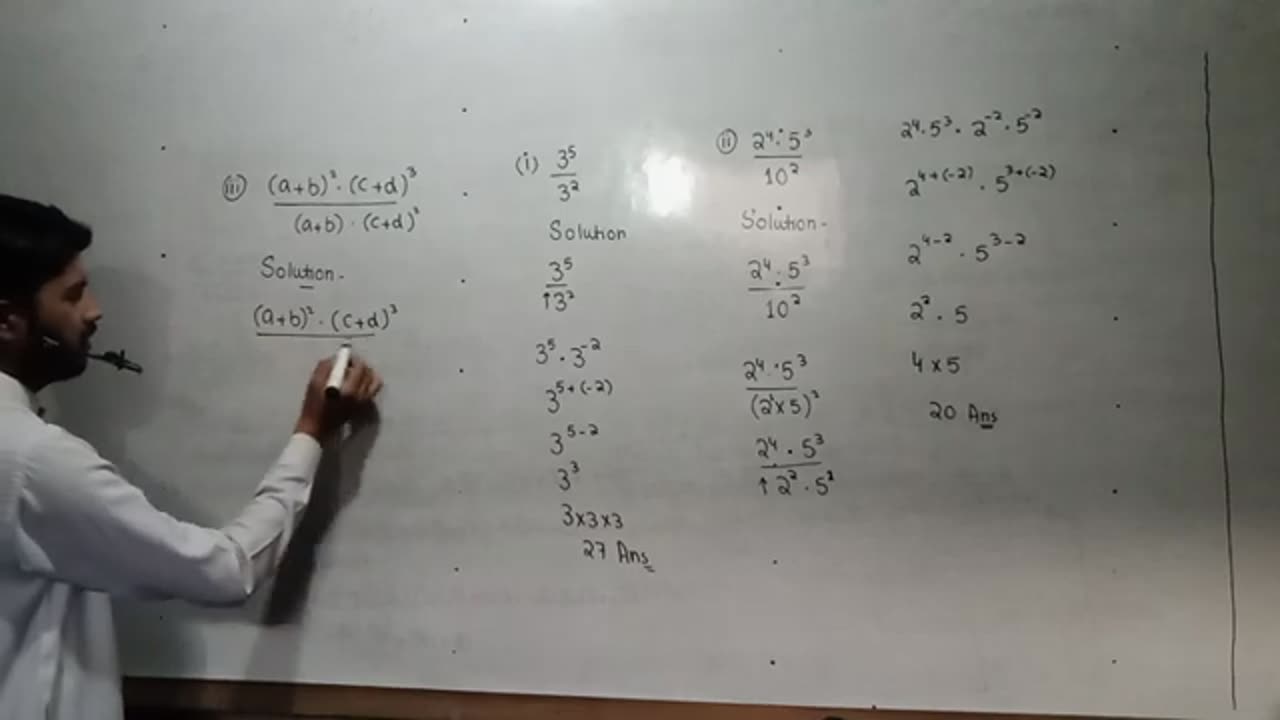 (iii) (a+b)² · (c+d)³
(a+b) · (c+d)²
Solution -
(a+b)² · (c+d)³
(i) 3⁵
3²
Solution
3⁵
↑3²
3⁵ · 3⁻²
3⁵⁺⁽⁻²⁾
3⁵⁻²
3³
3×3×3
27 Ans
(ii) 2⁴ · 5³
10²
Solution -
2⁴ · 5³
10²
2⁴ · 5³
(2×5)²
2⁴ · 5³
↑ 2² · 5²
2⁴ · 5³ · 2⁻² · 5⁻²
2⁴⁺⁽⁻²⁾ · 5³⁺⁽⁻²⁾
2⁴⁻² · 5³⁻²
2² · 5
4 × 5
20 Ans